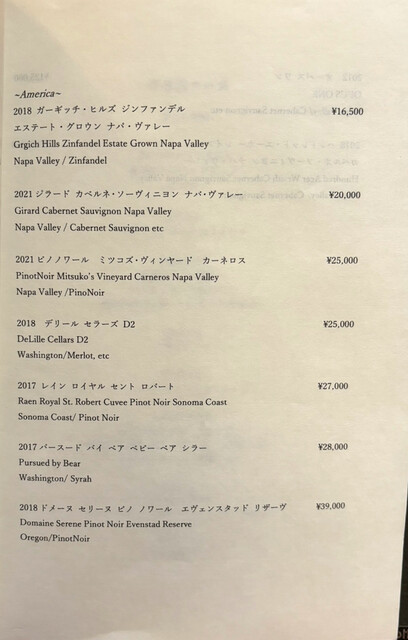 ~America~
2018 ガーギッチ・ヒルズ ジンファンデル ¥16,500
エステート・グロウン ナパ・ヴァレー
Grgich Hills Zinfandel Estate Grown Napa Valley
Napa Valley / Zinfandel
2021 ジラード カベルネ・ソーヴィニヨン ナパ・ヴァレー ¥20,000
Girard Cabernet Sauvignon Napa Valley
Napa Valley / Cabernet Sauvignon etc
2021 ピノノワール ミツコズ・ヴィンヤード カーネロス ¥25,000
PinotNoir Mitsuko's Vineyard Carneros Napa Valley
Napa Valley /PinoNoir
2018 デリール セラーズ D2 ¥25,000
DeLille Cellars D2
Washington/Merlot, etc
2017 レイン ロイヤル セント ロバート ¥27,000
Raen Royal St. Robert Cuvee Pinot Noir Sonoma Coast
Sonoma Coast/ Pinot Noir
2017 パースード バイ ベア ベビー ベア シラー ¥28,000
Pursued by Bear
Washington/ Syrah
2018 ドメーヌ セリーヌ ピノ ノワール エヴェンスタッド リザーヴ ¥39,000
Domaine Serene Pinot Noir Evenstad Reserve
Oregon/PinotNoir